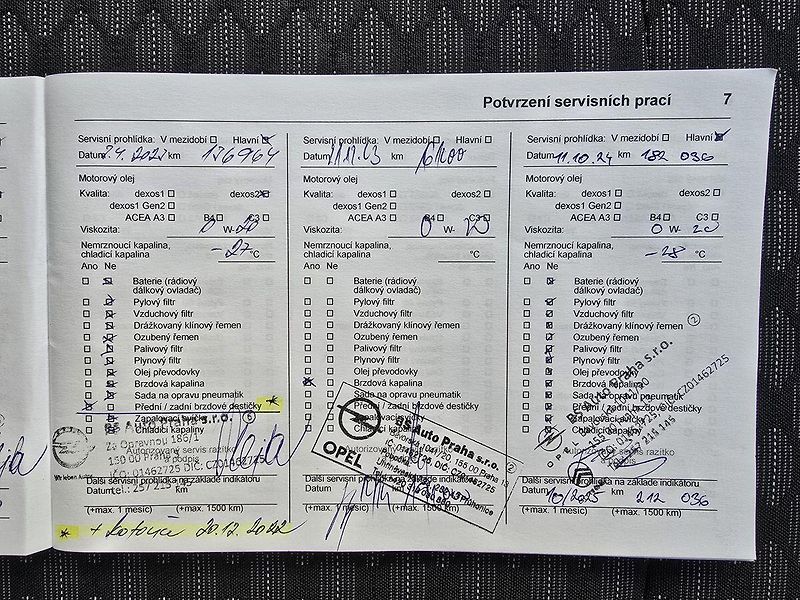 Potvrzení servisních prací 7
Servisní prohlídka: V mezidobí Hlavní
Datum 7.4.2021 km 136964
Motorový olej
Kvalita: dexos1 dexos2
dexos1 Gen2
ACEA A3 B4 C3
Viskozita: 0 W- 20
Nemrznoucí kapalina,
chladicí kapalina -27 °C
Ano Ne
Baterie (rádiový
dálkový ovladač)
Pylový filtr
Vzduchový filtr
Drážkovaný klínový řemen
Ozubený řemen
Palivový filtr
Plynový filtr
Olej převodovky
Brzdová kapalina
Sada na opravu pneumatik
Přední / zadní brzdové destičky *
Zapalovací svíčky
Chladicí kapaliny
BS Auto Praha s.r.o. 6
Za Opravnou 186/1
Autorizovaný servis razítko
150 00 Praha 5 podpis
IČ: 01462725 DIČ: CZ01462725
tel.: 257 219
Wir leben Autos
Další servisní prohlídka na základě indikátoru
Datum km
(+max. 1 měsíc) (+max. 1500 km)
* + kotouče 20.12.2022
Servisní prohlídka: V mezidobí Hlavní
Datum km
Motorový olej
Kvalita: dexos1 dexos2
dexos1 Gen2
ACEA A3 B4 C3
Viskozita: 0 W- 20
Nemrznoucí kapalina,
chladicí kapalina °C
Ano Ne
Baterie (rádiový
dálkový ovladač)
Pylový filtr
Vzduchový filtr
Drážkovaný klínový řemen
Ozubený řemen
Palivový filtr
Plynový filtr
Olej převodovky
Brzdová kapalina
Sada na opravu pneumatik
Přední / zadní brzdové destičky
BS Auto Praha s.r.o. 2
155 00 Praha 13
OPEL
Další servisní prohlídka na základě indikátoru
Datum
(+max. 1 měsíc) (+max. 1500 km)
Servisní prohlídka: V mezidobí Hlavní
Datum 11.10.24 km 182 036
Motorový olej
Kvalita: dexos1 dexos2
dexos1 Gen2
ACEA A3 B4 C3
Viskozita: 0 W- 20
Nemrznoucí kapalina,
chladicí kapalina -28 °C
Ano Ne
Baterie (rádiový
dálkový ovladač)
Pylový filtr
Vzduchový filtr
Drážkovaný klínový řemen
Ozubený řemen
Palivový filtr
Plynový filtr
Olej převodovky
Brzdová kapalina
Sada na opravu pneumatik
Přední / zadní brzdové destičky
Zapalovací svíčky
Chladicí kapaliny
BS Auto Praha s.r.o. 2
CZ01462725
Autorizovaný servis razítko
Další servisní prohlídka na základě indikátoru
Datum 10/2025 km 212 036
(+max. 1 měsíc) (+max. 1500 km)